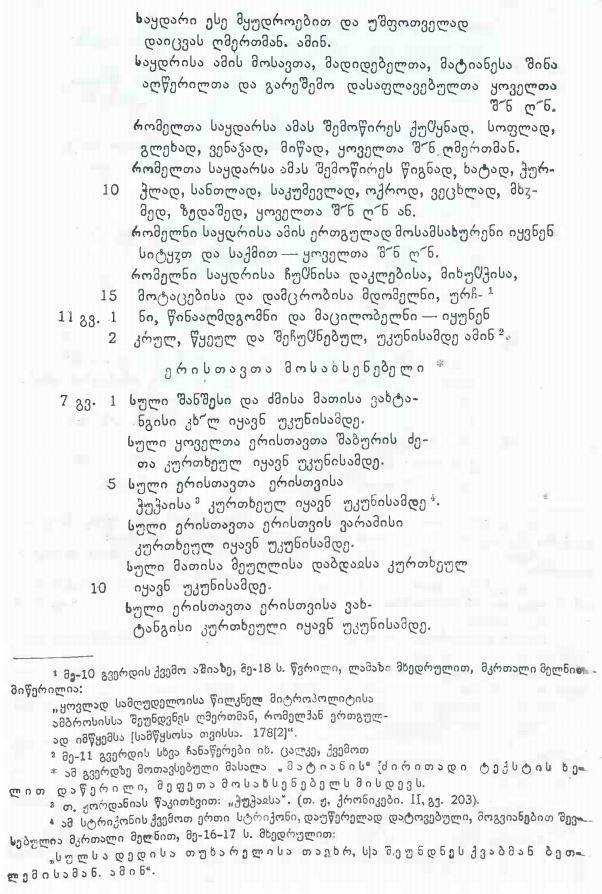 საყდარი ესე მყუდროებით და უშფოთველად
დაიცვას ღმერთმან. ამინ.
საყდრისა ამის მოსავთა, მადიდებელთა, მატიანესა შინა
აღწერილთა და გარეშემო დასაფლავებულთა ყოველთა
შ˜ნ ღ˜ნ.
რომელთა საყდარსა ამას შემოწირეს ქუჱყნად, სოფლად,
გლეხად, ვენაჴად, მიწად, ყოველთა შ˜ნ ღმერთმან.
რომელთა საყდარსა ამას შემოწირეს წიგნად, ხატად, ჭურ-
10 ჭლად, სანთლად, საკუმევლად, ოქროდ, ვეცხლად, მხჳ-
მედ, ზედაშედ, ყოველთა შ˜ნ ღ˜ნ ან.
რომელნი საყდრისა ამის ერთგულად მოსამსახურენი იყვნენ
სიტყჳთ და საქმით — ყოველთა შ˜ნ ღ˜ნ.
რომელნი საყდრისა ჩუჱნისა დაკლებისა, მიხუჱჭისა,
15 მოტაცებისა და დამცრობისა მდომელნი, ურჩ- ¹
11 გვ. 1 ნი, წინააღმდგომნი და მაცილობელნი — იყუნენ
2 კრულ, წყეულ და შეჩუჱნებულ, უკუნისამდე ამინ ².
ერისთავთა მოსახსენებელი *
7 გვ. 1 სული შანშესი და ძმისა მათისა ვახტა-
ნგისი კხ˜ლ იყავნ უკუნისამდე.
სული ყოველთა ერისთავთა შაბურის ძე-
თა კურთხეულ იყავნ უკუნისამდე.
5 სული ერისთავთა ერისთვისა
ჭუჭაისა ³ კურთხეულ იყავნ უკუნისამდე ⁴.
სული ერისთავთა ერისთვის ვარამისი
კურთხეულ იყავნ უკუნისამდე.
სული მათისა მეუღლისა დაბდაჲსა კურთხეულ
10 იყავნ უკუნისამდე.
სული ერისთავთა ერისთვისა ვახ-
ტანგისი კურთხეული იყავნ უკუნისამდე.
¹ მე-10 გვერდის ქვემო აშიაზე, მე-18 ს. წვრილი, ლამაზი მხედრულით, მკრთალი მელნით
მიწერილია:
„ყოვლად სამღუდელოისა წილკნელ მიტროპოლიტისა
ამბროსისსა შეუნდვნეს ღმერთმან, რომელმან ერთგულ-
ად იმწყემსა [სამწყსოსა თვისსა. 178[2]“.
² მე-11 გვერდის სხვა ჩანაწერები იხ. ცალკე, ქვემოთ
* ამ გვერდზე მოთავსებული მასალა „მატიანის“ [ძირითადი ტექსტის ხე-
ლით დაწერილი, მეფეთა მოსახსენებელს მისდევს.
³ თ. ჟორდანიას წაკითხვით: „ჭუჭაჲსა“. (თ. ჟ, ქრონიკები. II, გვ. 203).
⁴ ამ სტრიქონის ქვემოთ ერთი სტრიქონი, დაუწერელად დატოვებული, მოგვიანებით შევ-
სებულია მკრთალი მელნით, მე-16-17 ს. მხედრულით:
„სულსა დედისა თუხარელისა შ.ეუნდნეს ქვაბმან ბეთ-
ლემისამან. ამინ“.